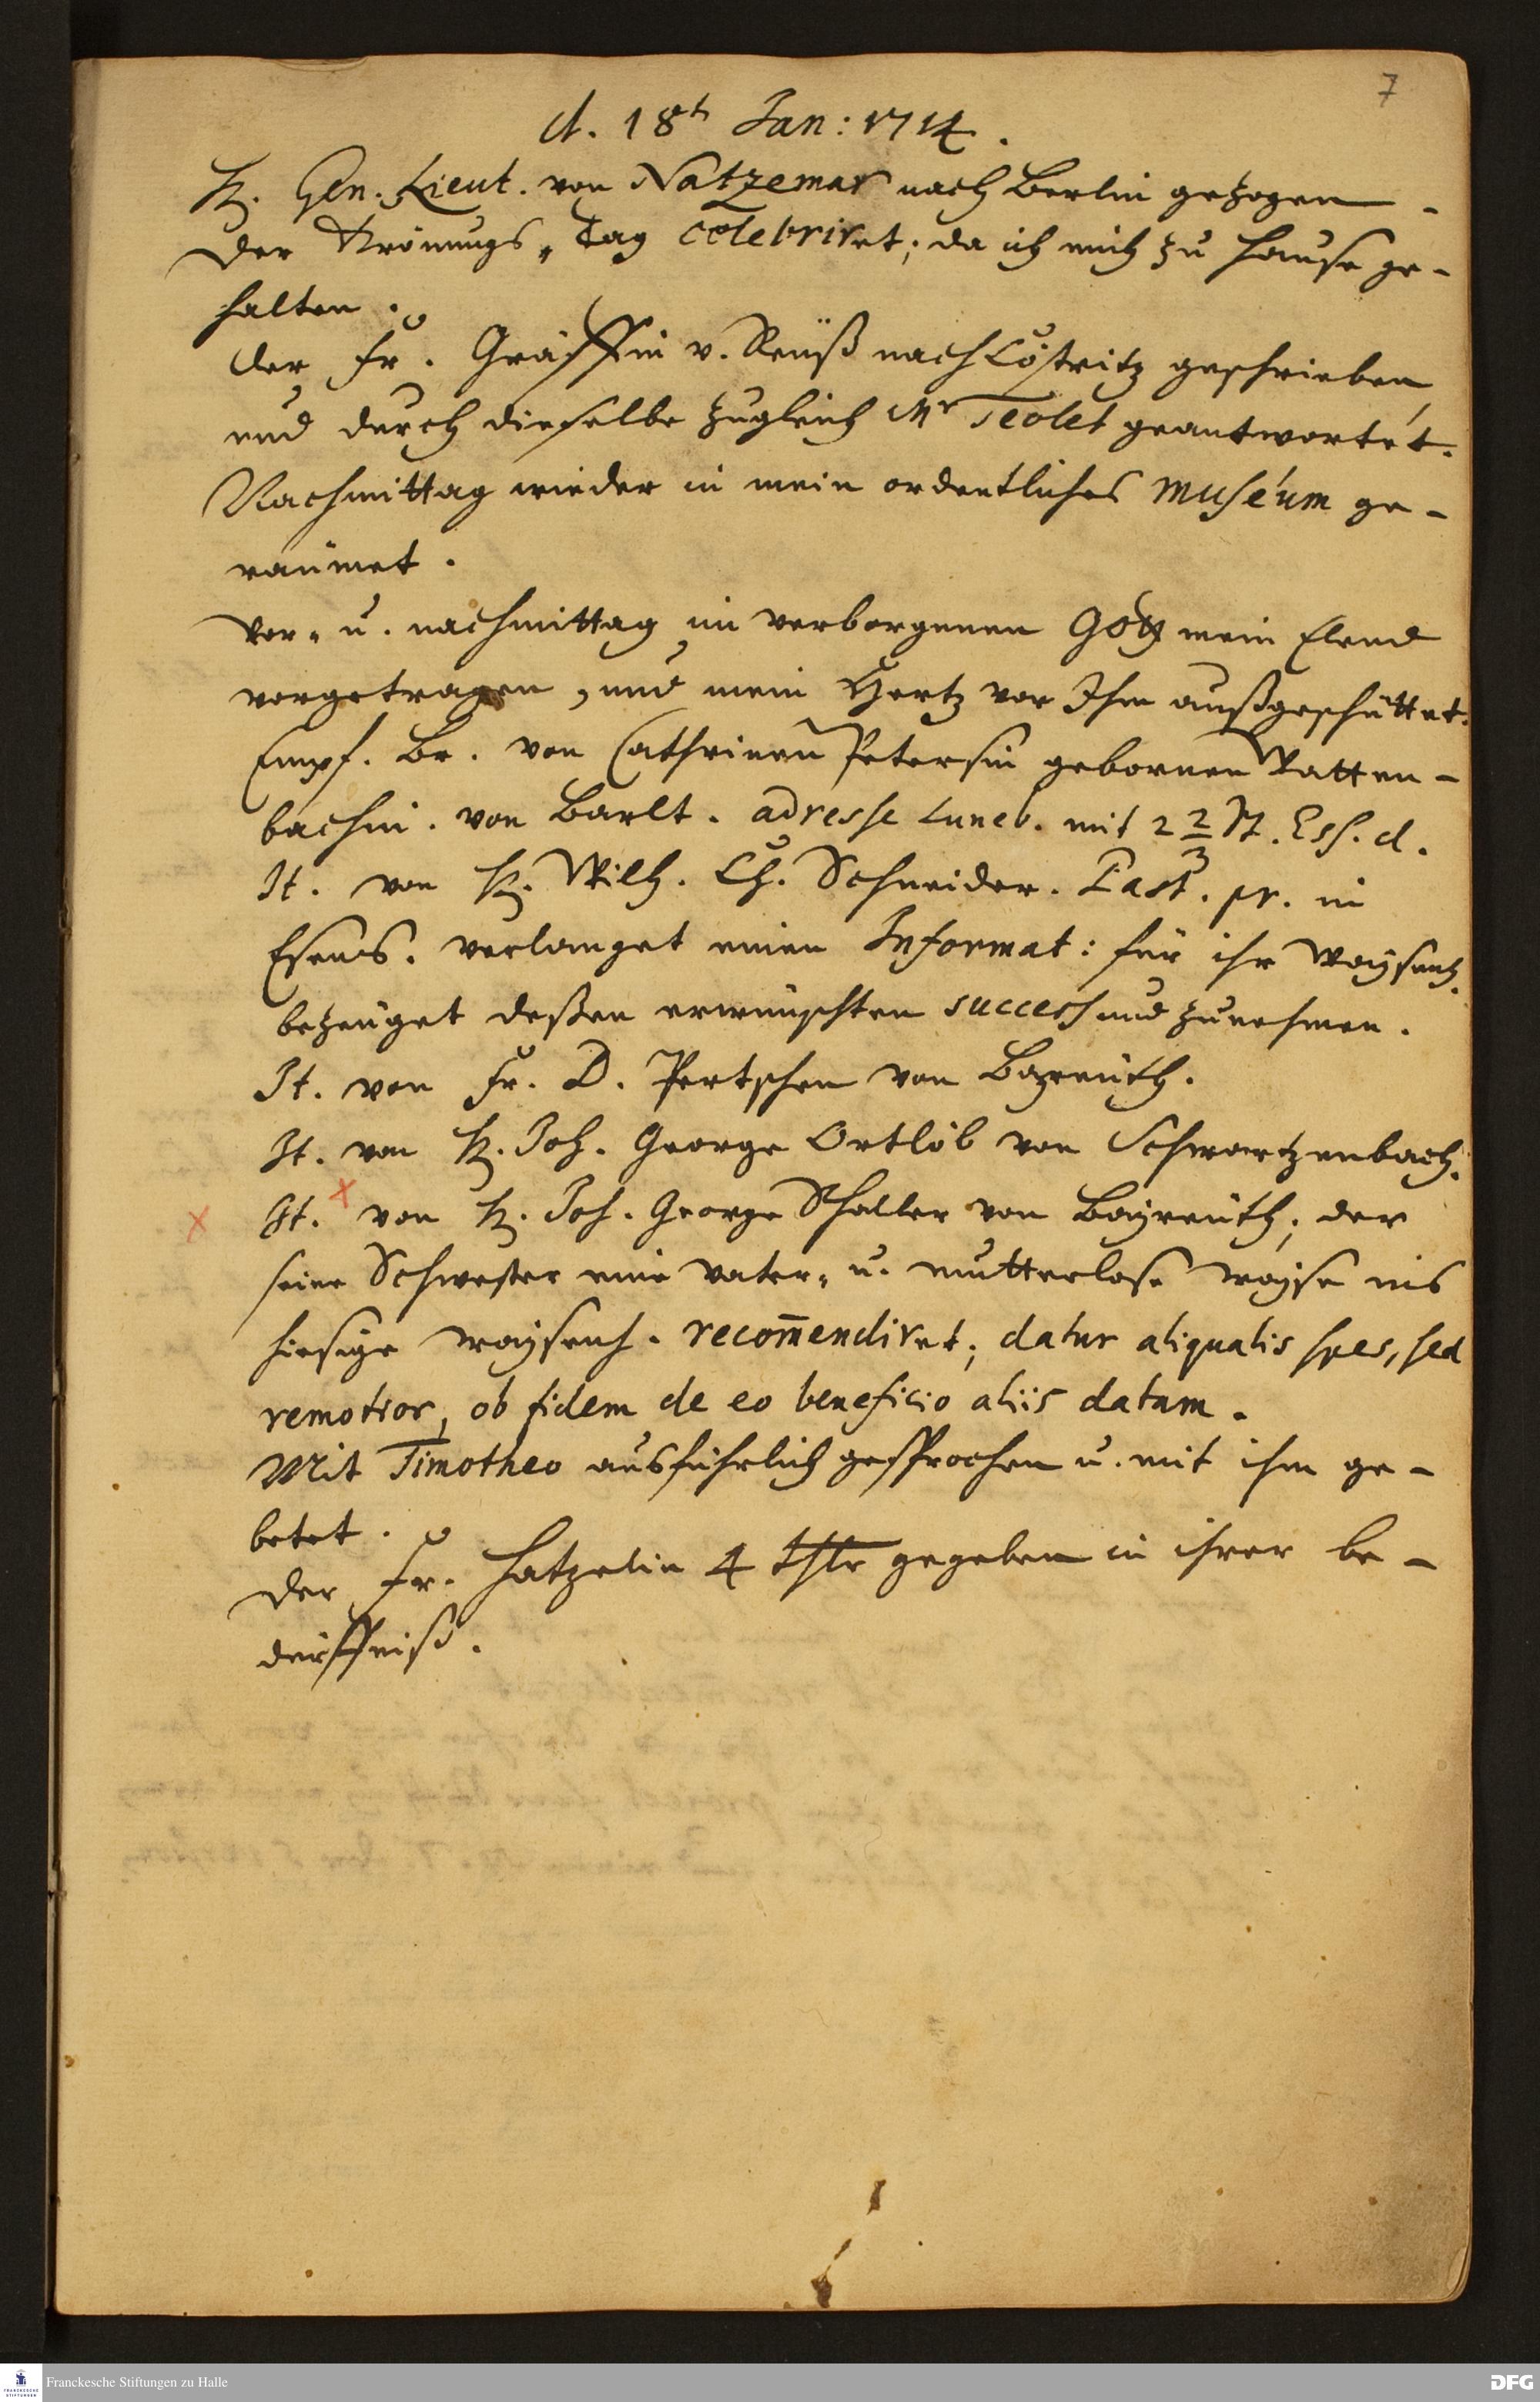 7
d. 18t Jan: 1714.
H. Gen. Lieut. von Natzemar nach Berlin gezogen.
Der Krönungs-Tag celebriret; da ich mich zu Hause ge-
halten.
der Fr. Gräffin v. Reüß nach Cöstritz geschrieben
und durch dieselbe zugleich Mr Teolet geantwortet.
Nachmittag wieder in mein ordentliches Museum ge-
räumet.
Vor- u. nachmittag im verborgenen Gott mein Elend
vorgetragen, und mein Hertz vor Ihm außgeschüttet.
Empf. Br. von Cathrinen Petersin gebornen Ratten-
bachin. von Barlt. adresse Luneb. mit 2 2/3 St. Ess. d.
It. von H. Wilh. Ch. Schneider. Past. pr. in
Esens. verlanget einen Informat: für ihr Waysenh.
bezeuget deßen erwünschten success und zunehmen.
It. von Fr. D. Pertschen von Bayreuth.
It. von H. Joh. George Ortlöb von Schwartzenbach.
x It. x von H. Joh. George Schaller von Bayreuth; der
seine Schwester eine Vater- u. mutterlose Wayse ins
hiesige Waysenh. recom̄endiret; datur aliqualis spes, sed
remotior, ob fidem de eo beneficio aliis datam.
Mit Timotheo ausführlich gesprochen u. mit ihm ge-
betet.
Der Fr. Hatzelin 4 thlr gegeben in ihrer be-
dürffniß.
Franckesche Stiftungen zu Halle
DFG